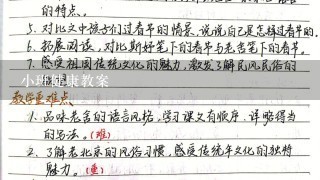 的特点。
5. 对比文中孩子们过春节的情景，说说自己是怎样过春节的。
6. 拓展阅读，对比斯好笔下的春节与老舍笔下的春节。
7. 感受祖国传统文化的魅力，激发了解民风民俗的
小班健康教案
教学重难点
1. 品味老舍的语言风格，学习课文有顺序、详略得当
的写法。（难）
2. 了解老北京的风俗习惯，感受传统年文化的独特
魅力。（重）